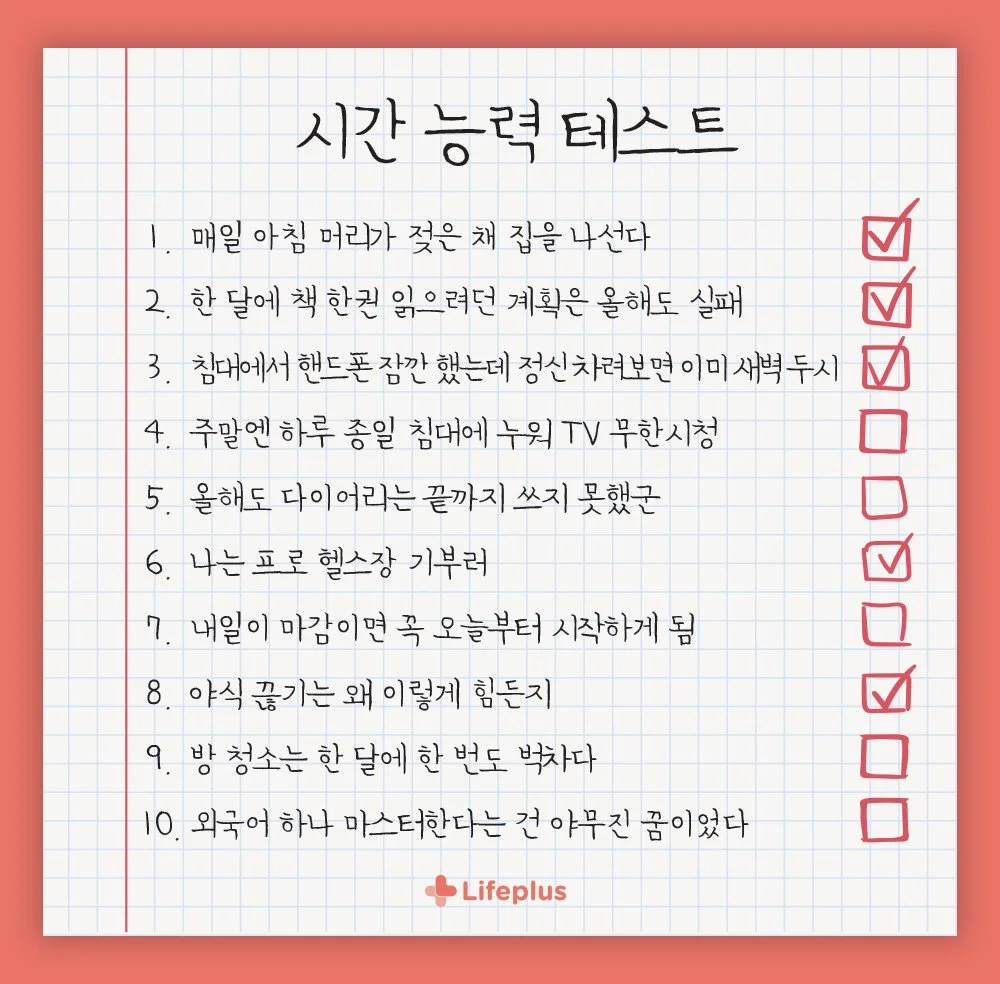 시간 능력 테스트
1. 매일 아침 머리가 젖은 채 집을 나선다
2. 한 달에 책 한권 읽으려던 계획은 올해도 실패
3. 침대에서 핸드폰 잠깐 했는데 정신차려보면 이미 새벽 두시
4. 주말엔 하루 종일 침대에 누워 TV 무한시청
5. 올해도 다이어리는 끝까지 쓰지 못했군
6. 나는 프로 헬스장 기부러
7. 내일이 마감이면 꼭 오늘부터 시작하게 됨
8. 야식 끊기는 왜 이렇게 힘든지
9. 방 청소는 한 달에 한 번도 벅차다
10. 외국어 하나 마스터한다는 건 야무진 꿈이었다
Lifeplus